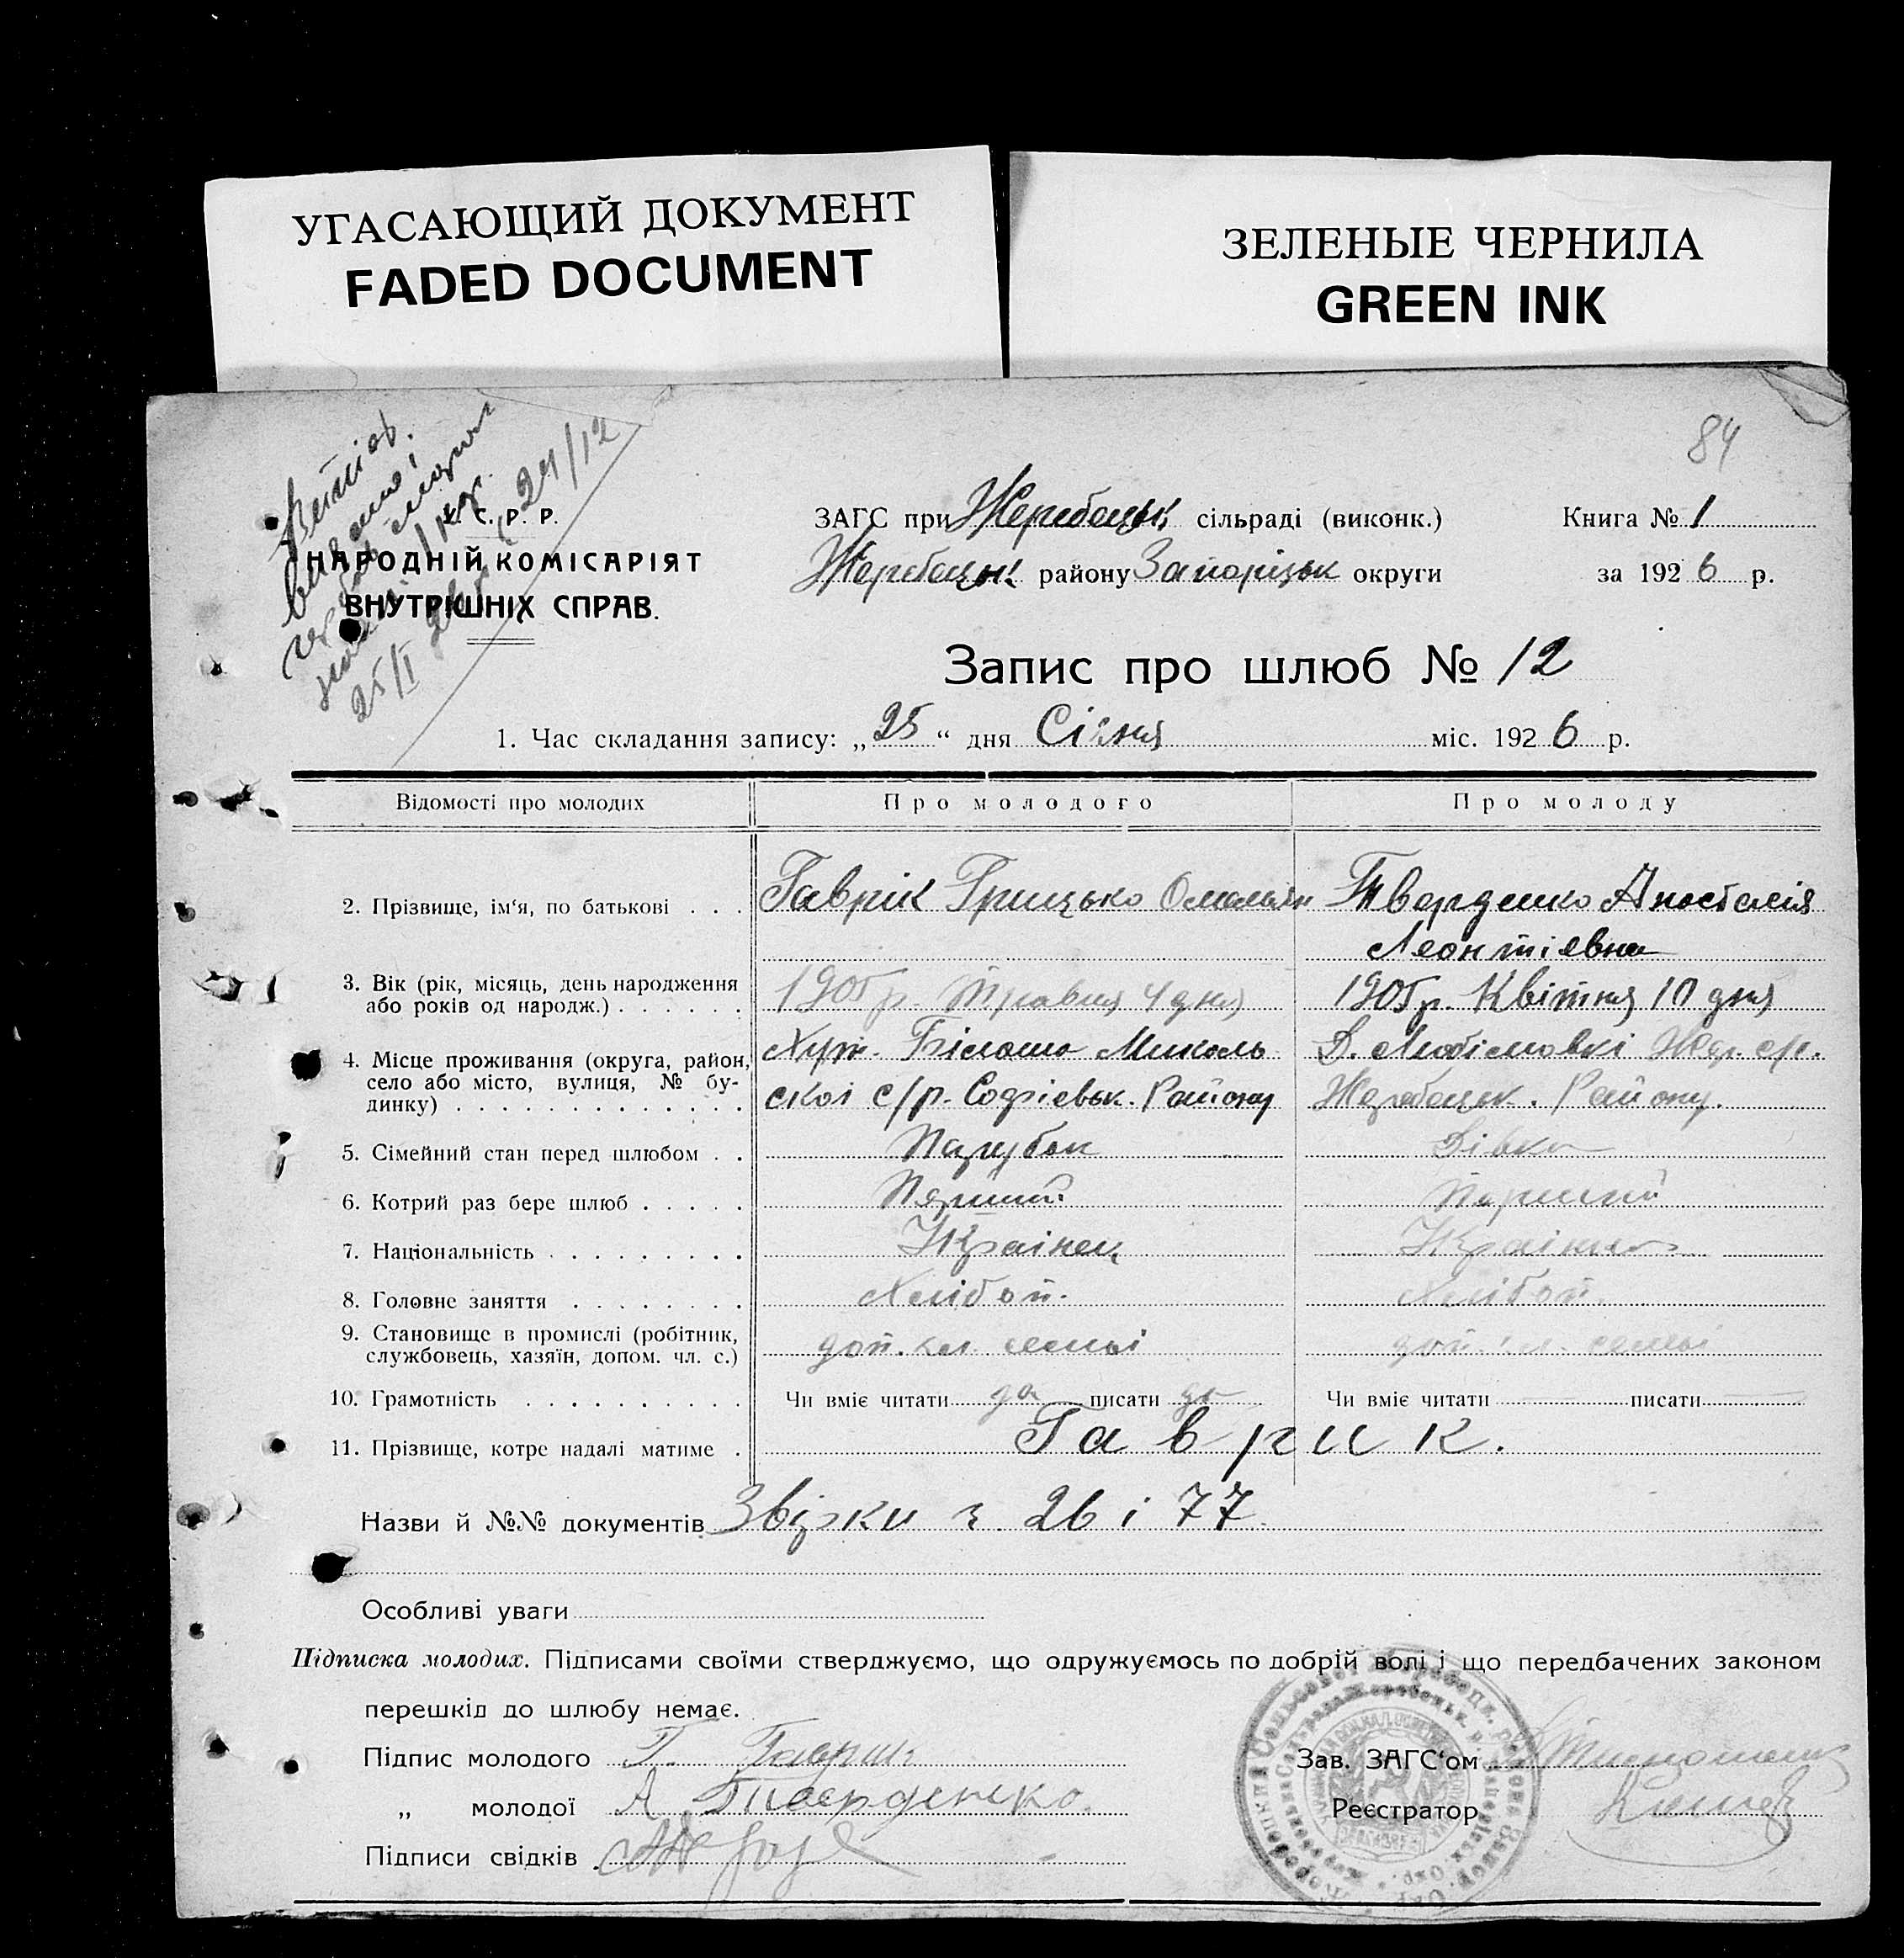 УГАСАЮЩИЙ ДОКУМЕНТ
FADED DOCUMENT
ЗЕЛЕНЫЕ ЧЕРНИЛА
GREEN INK
84
24/12
25/I
У. С. Р. Р.
НАРОДНІЙ КОМІСАРІЯТ
ВНУТРІШНІХ СПРАВ.
ЗАГС при Жеребецьк сільраді (виконк.)
Жеребецьк району Запоріцьк округи
Книга № 1
за 1926 р.
Запис про шлюб № 12
1. Час складання запису: „25“ дня Січня міс. 1926 р.
Відомості про молодих Про молодого Про молоду
2. Прізвище, ім‘я, по батькові . . . Гаврік Грицько Омельян Тверденко Анастасія
Леонтієвна
3. Вік (рік, місяць, день народження 1905 р. Травня 4 дня 1905 р. Квітня 10 дня
або років од народж.) . . . . . .
4. Місце проживання (округа, район, Хут. Білаша Миколь Д. Любімовкі Жер. с/р.
село або місто, вулиця, № бу- скої с/р. Софієвськ. Району Жеребецьк. Району.
динку) . . . . . . . . . . . . .
5. Сімейний стан перед шлюбом . . Парубок Дівка
6. Котрий раз бере шлюб . . . . . Перший Перший
7. Національність . . . . . . . . . Українец Українка
8. Головне заняття . . . . . . . . Хлібоп. Хлібоп.
9. Становище в промислі (робітник, доп. чл. семьі доп. чл. семьі
службовець, хазяїн, допом. чл. с.)
10. Грамотність . . . . . . . . . . Чи вміє читати да писати да Чи вміє читати — писати —
11. Прізвище, котре надалі матиме . Гаврик.
Назви й №№ документів Звізки ч. 26 і 77.
Особливі уваги
Підписка молодих. Підписами своїми стверджуємо, що одружуємось по добрій волі і що передбачених законом
перешкід до шлюбу немає.
Підпис молодого Г. Гаврик
„ молодої А. Твердєнко.
Підписи свідків
Зав. ЗАГС‘ом
Реєстратор